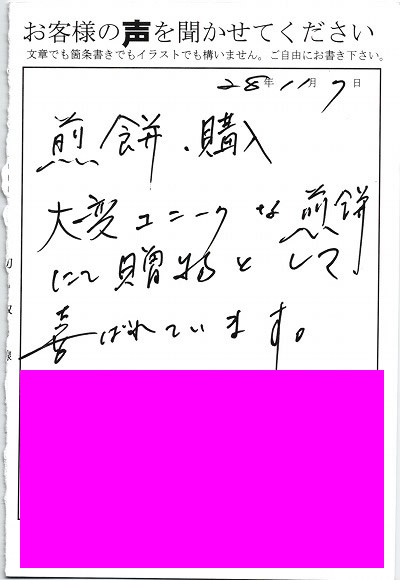 お客様の声を聞かせてください
文章でも箇条書きでもイラストでも構いません。ご自由にお書き下さい。
28年11月7日
煎餅・購入
大変ユニークな煎餅
にて贈物として
喜ばれています。